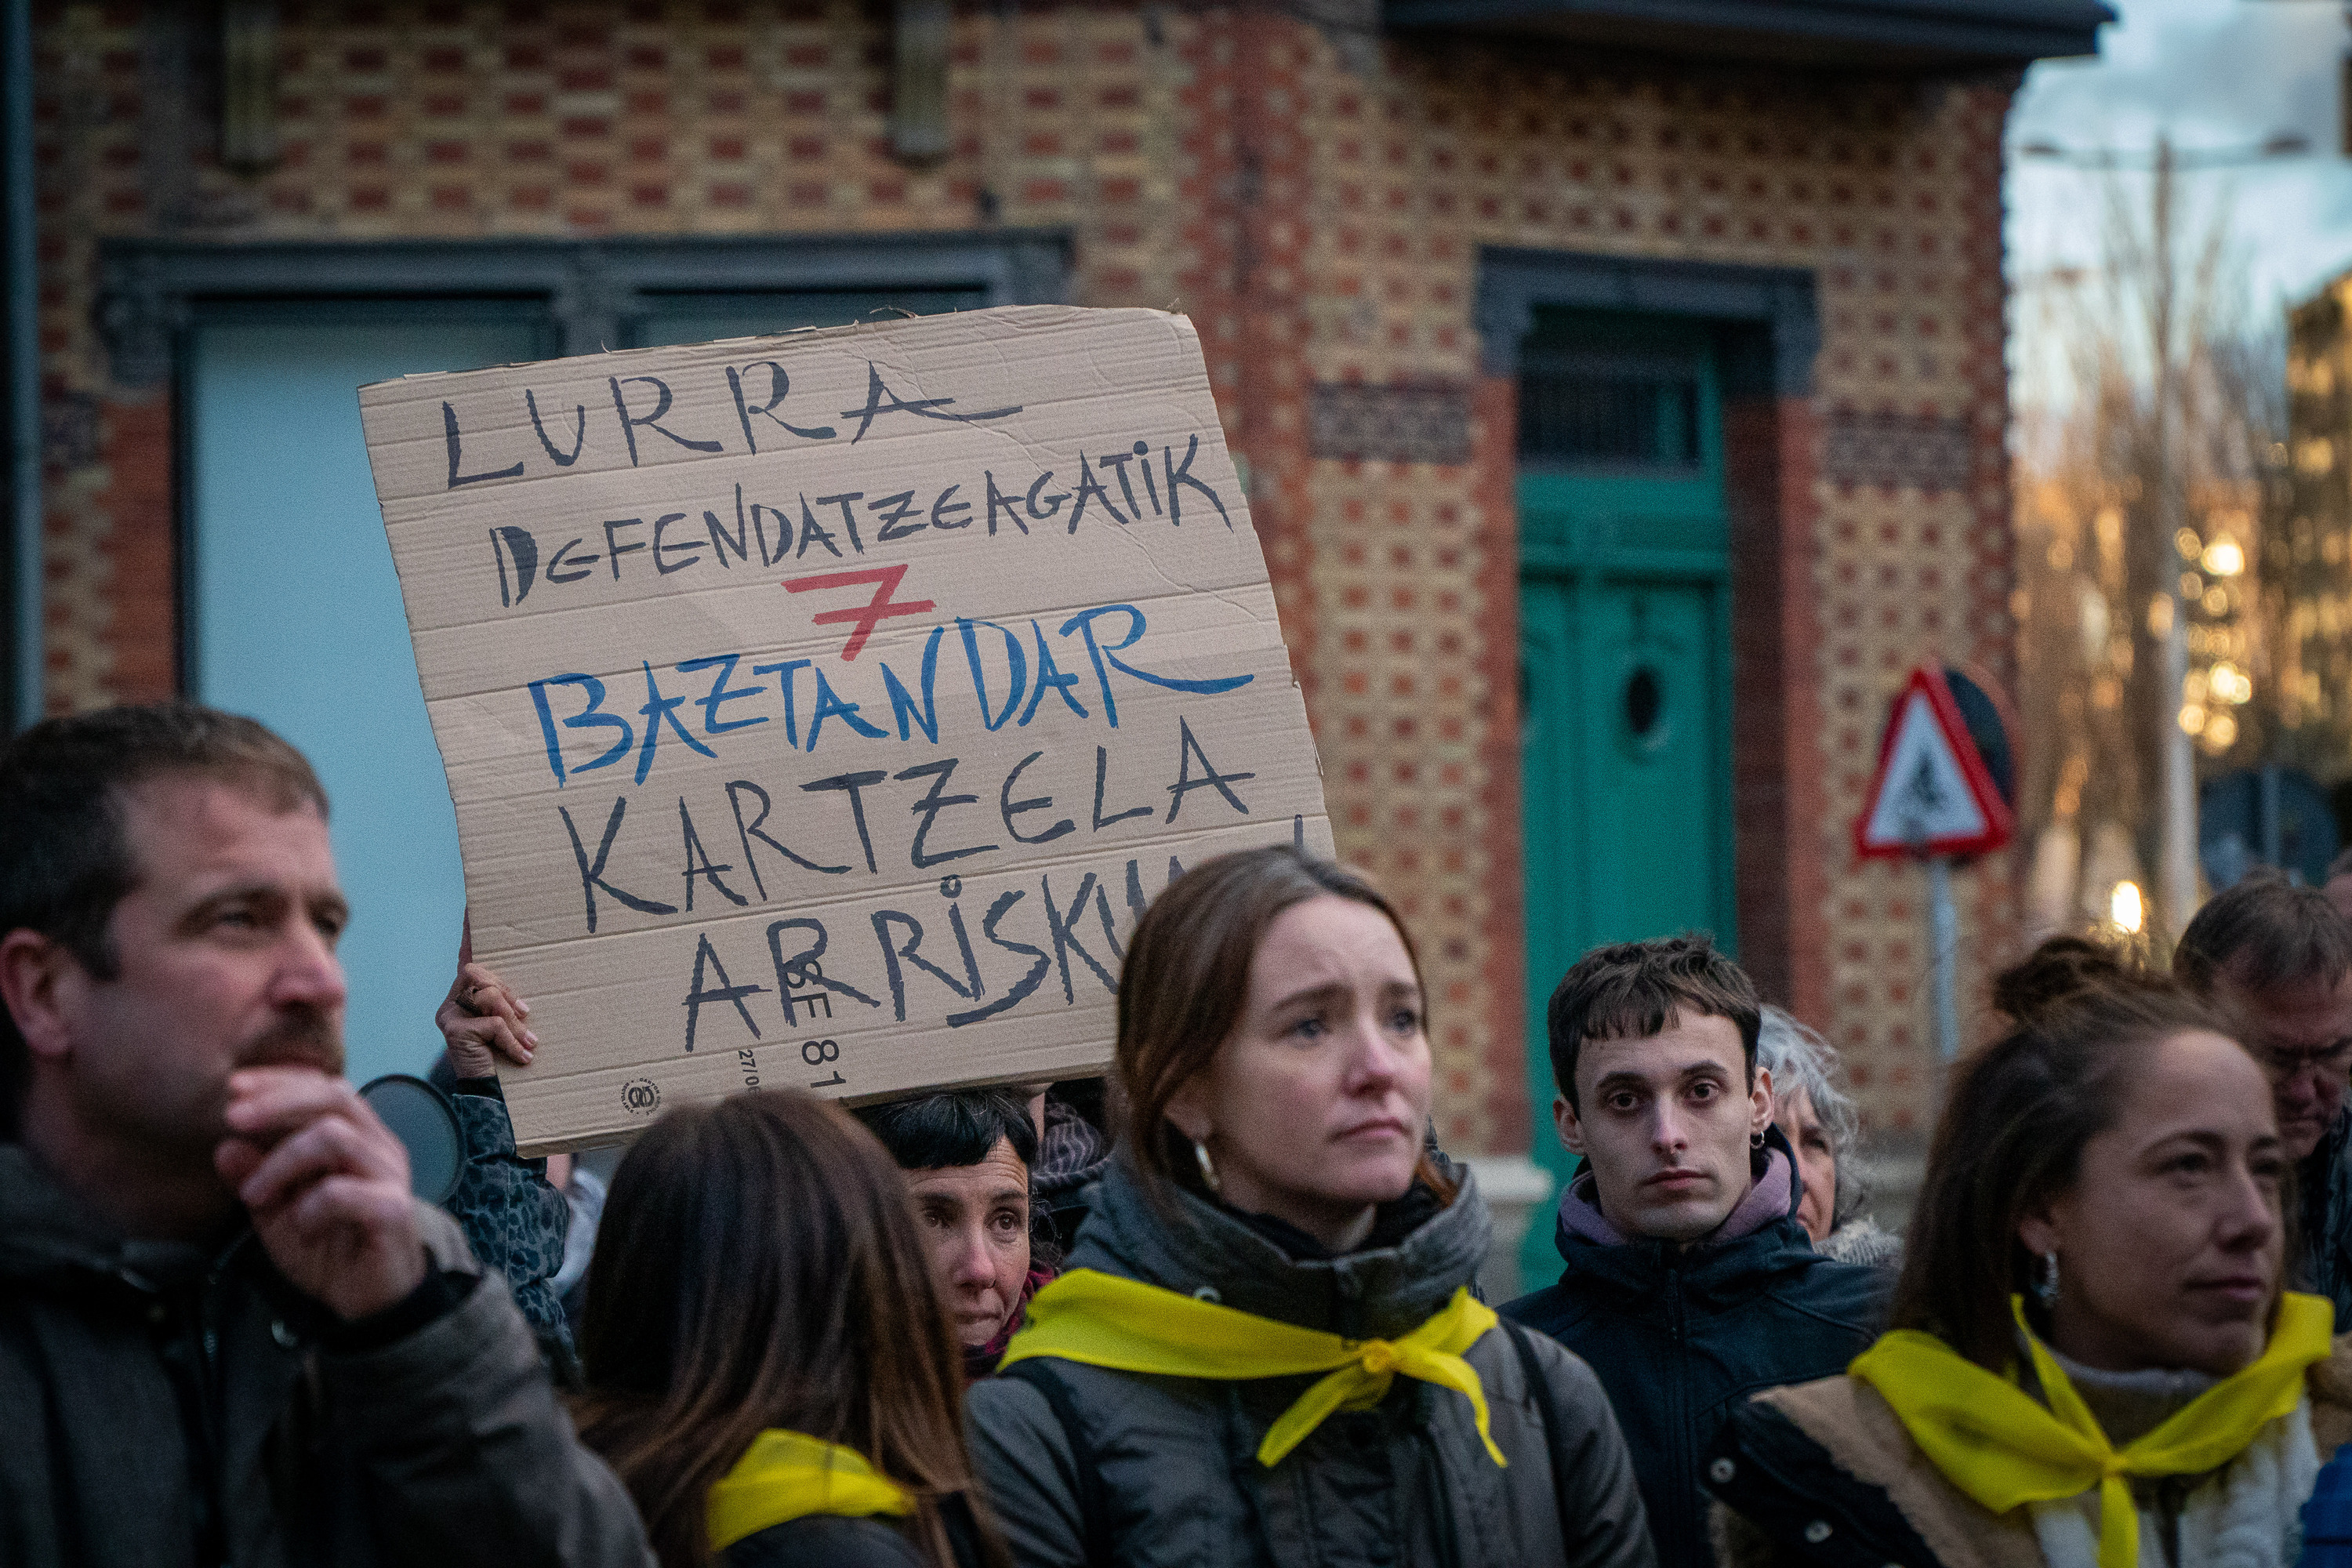 LURRA
DEFENDATZEAGATIK
7
BAZTANDAR
KARTZELA
ARRISKUA